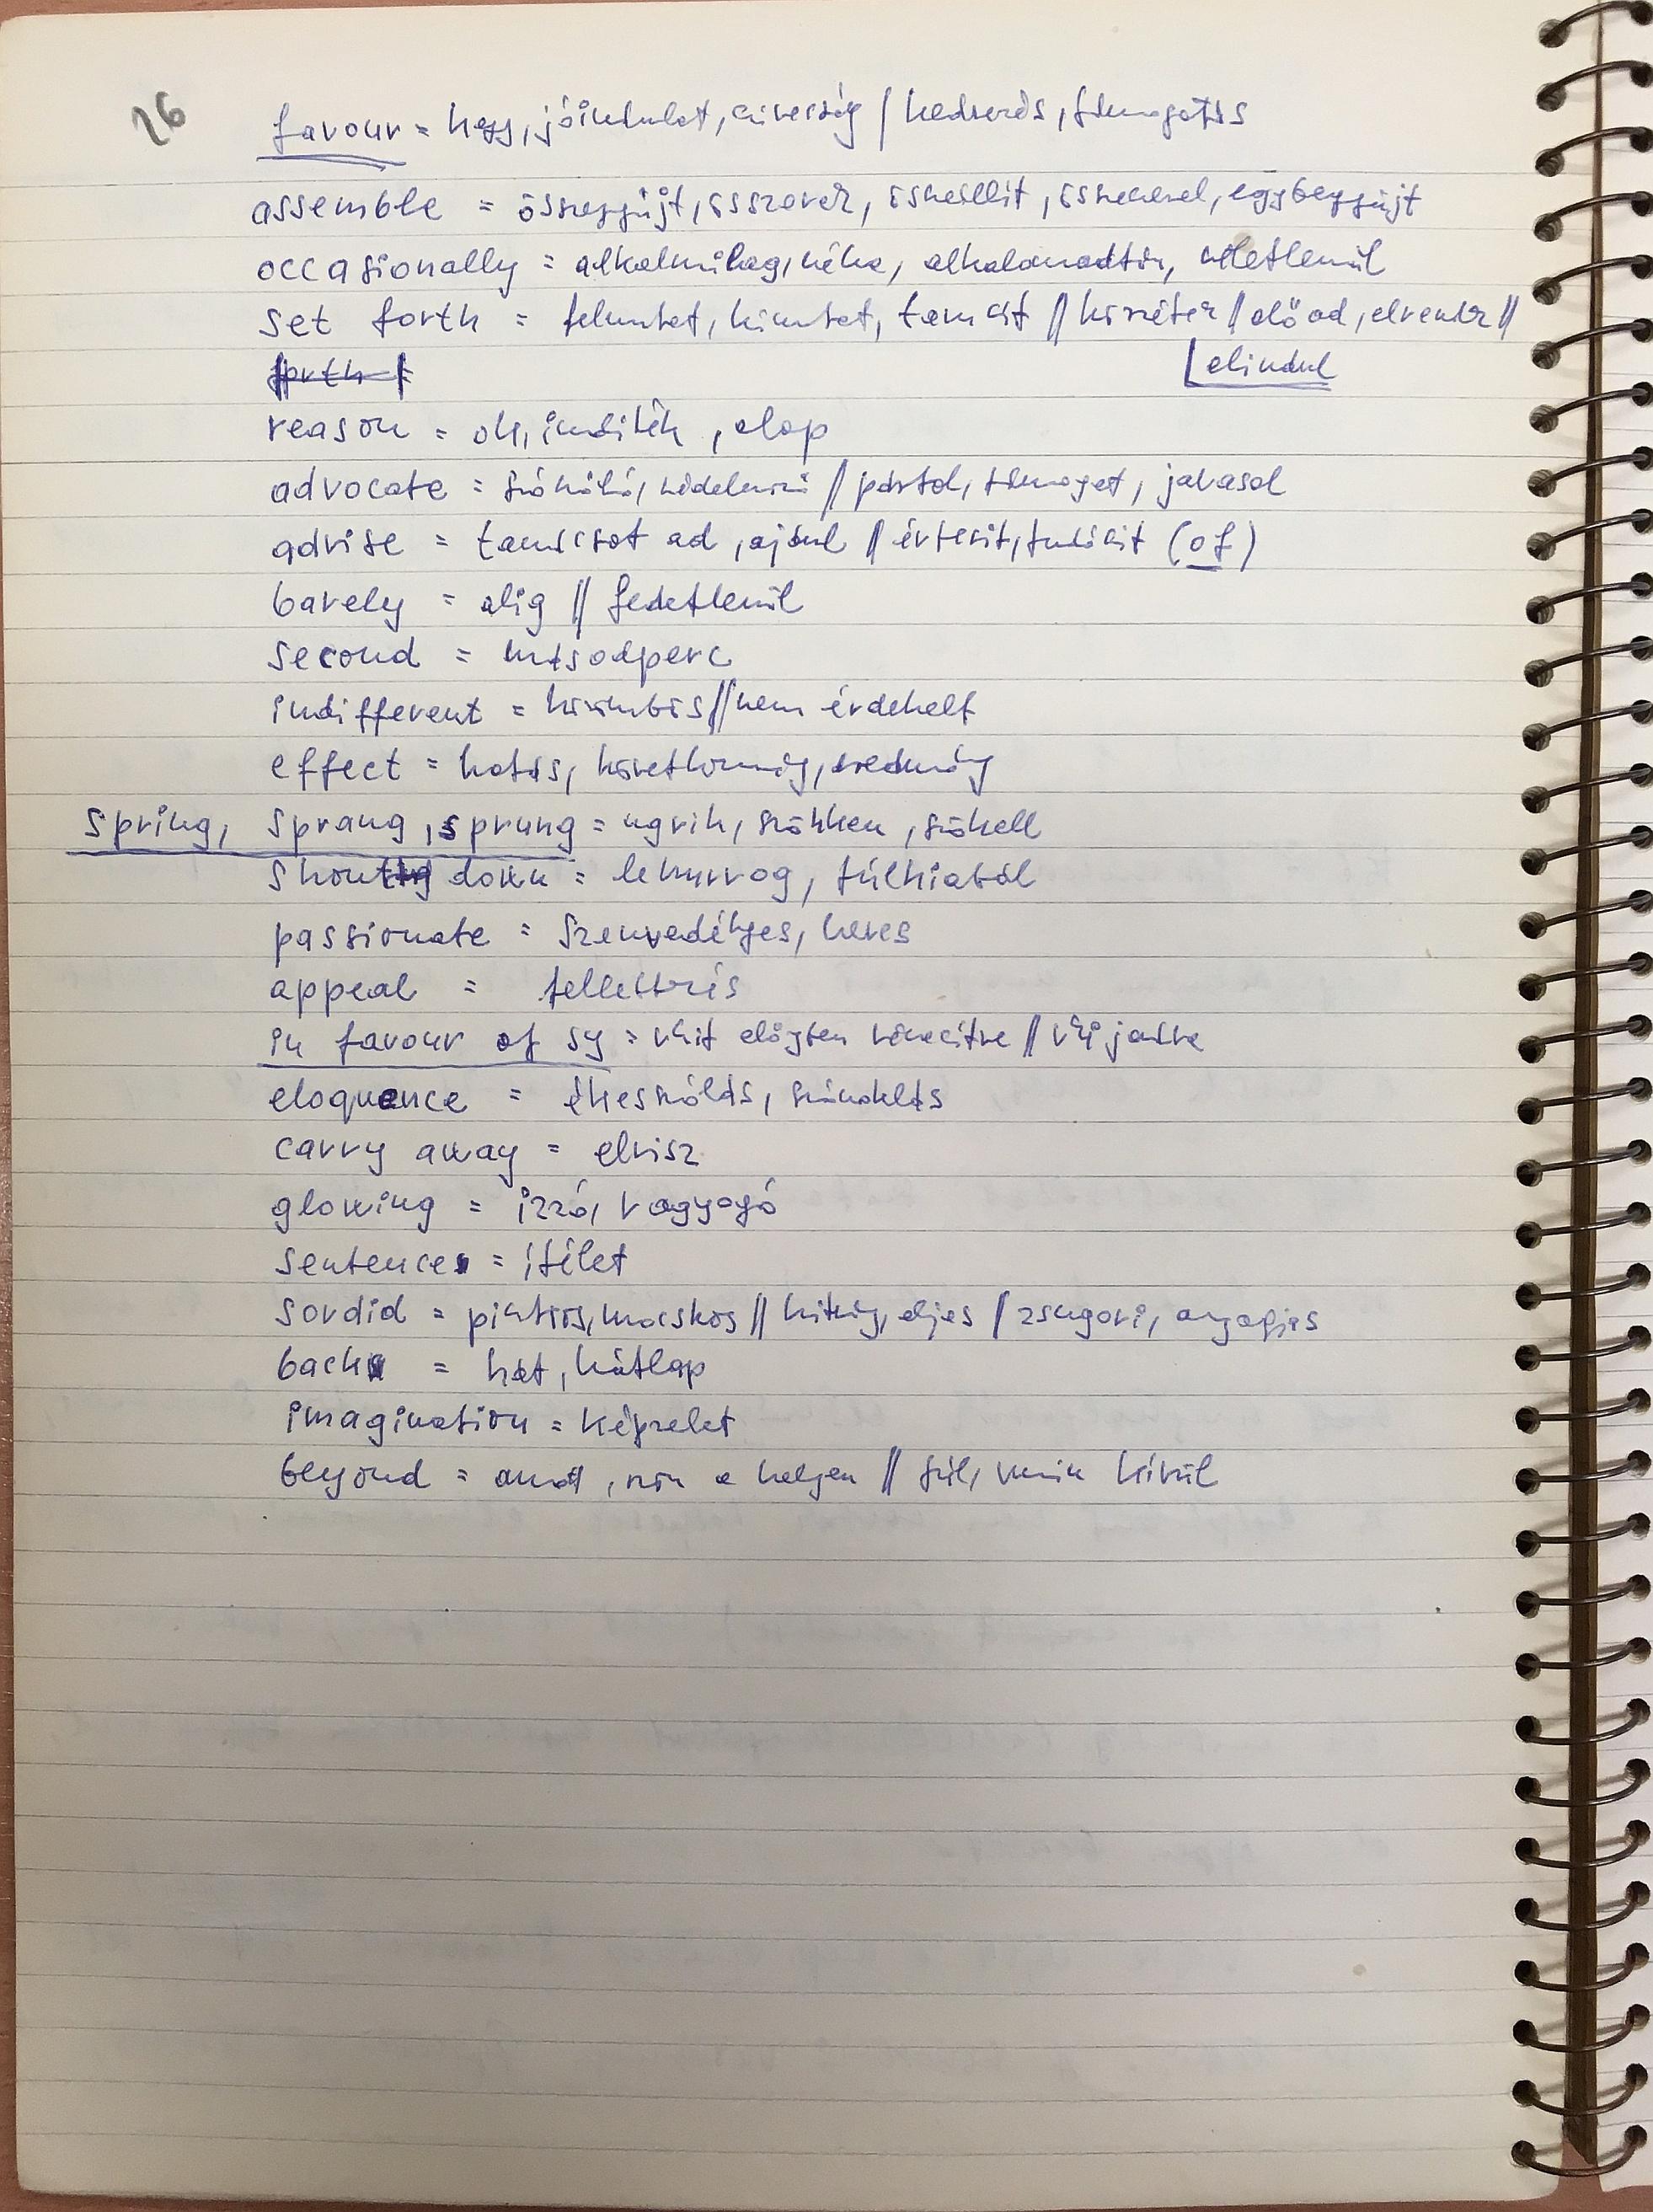 26
favour = kegy, jóindulat, szívesség / kedvezés, támogatás
assemble = összegyűjt, összever, összeállít, összeszerel, egybegyűjt
occasionally = alkalmilag, néha, alkalomadtán, véletlenül
set forth = feltüntet, kimutat, tanusít // közzétesz // előad, elvezet //
elindul
reason = ok, indíték, alap
advocate = szószóló, védelmező // pártol, támogat, javasol
advise = tanácsot ad, ajánl // értesít, tudósít (of)
barely = alig // fedetlenül
second = másodperc
indifferent = közömbös // nem érdekelt
effect = hatás, következmény, eredmény
spring, sprang, sprung = ugrik, szökken, szökell
shout down = lehurrog, túlkiabál
passionate = szenvedélyes, heves
appeal = fellebbezés
in favour of sy = vkit előnyben részesítve // vki javára
eloquence = ékesszólás, szónoklás
carry away = elvisz
glowing = izzó, ragyogó
sentence = ítélet
sordid = piszkos, mocskos // hitvány, aljas / zsugori, anyagias
back = hát, hátlap
imagination = képzelet
beyond = amott, más helyen // túl, vmin kívül